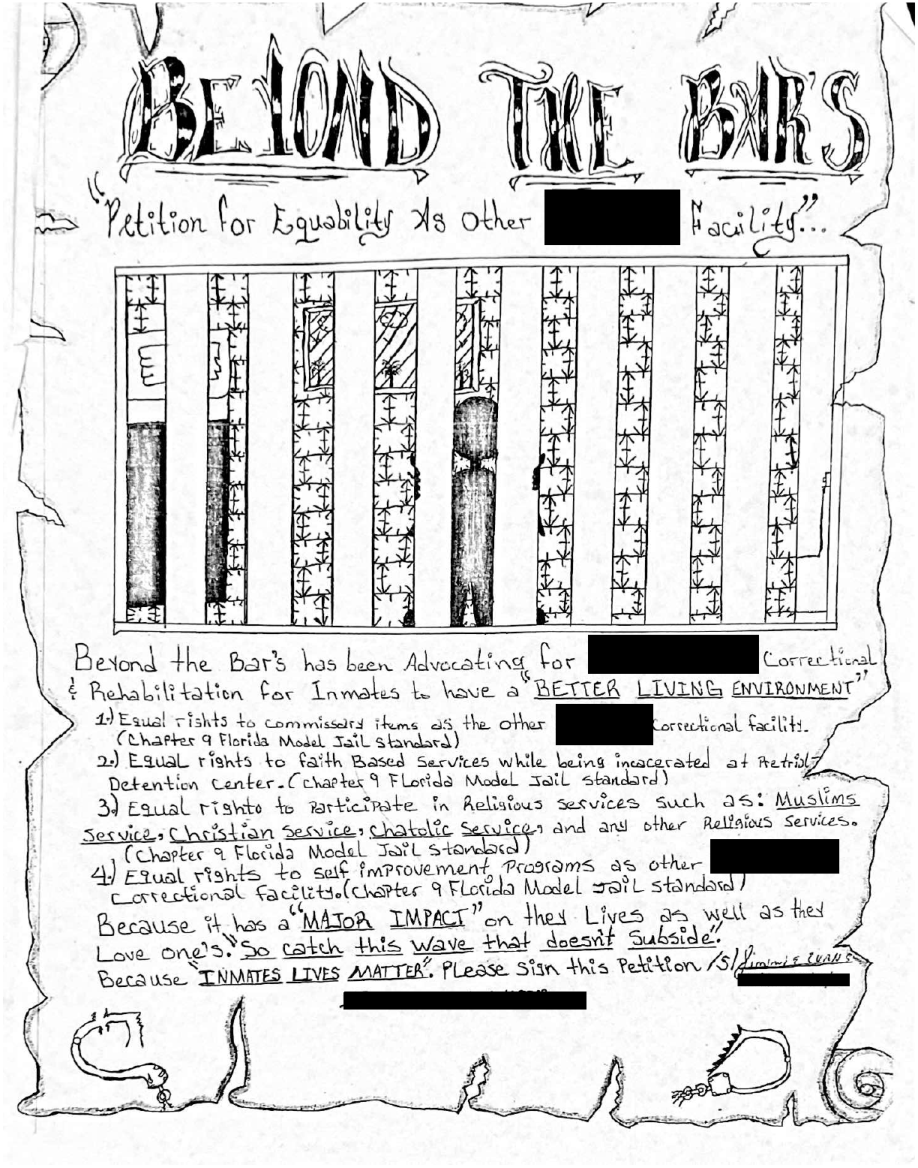 BEYOND THE BAR'S
"Petition for Equability As Other Facility"...
Beyond the Bar's has been Advocating for Correctional
& Rehabilitation for Inmates to have a "BETTER LIVING ENVIRONMENT"
1.) Equal rights to commissary items as the other Correctional facility.
(Chapter 9 Florida Model Jail Standard)
2.) Equal rights to faith Based Services while being incacerated at Pretrial-
Detention Center. (Chapter 9 Florida Model Jail standard)
3.) Equal rights to Participate in Religious services such as: Muslims
Service, Christian Service, Chatolic Service, and any other Religious Services.
(Chapter 9 Florida Model Jail Standard)
4.) Equal rights to self improvement Programs as other
Correctional facility. (Chapter 9 Florida Model Jail standard)
Because it has a "MAJOR IMPACT" on they Lives as well as they
Love one's. "So catch this wave that doesn't Subside".
Because "INMATES LIVES MATTER". Please Sign this Petition /S/